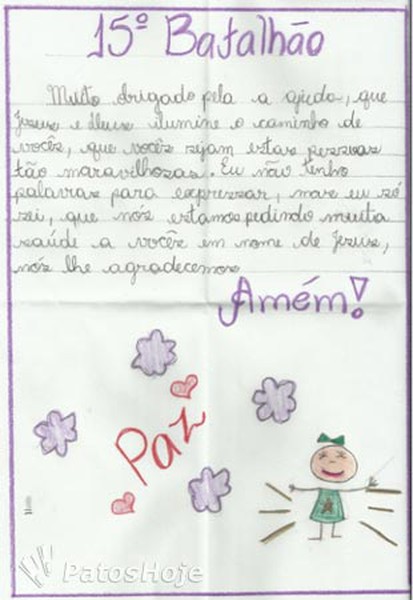 15º Batalhão
Muito obrigado pela a ajuda, que
Jesus e Deus ilumine o caminho de
vocês, que vocês sejam estas pessoas
tão maravilhosas. Eu não tenho
palavras para expressar, mas eu só
sei, que nós estamos pedindo muita
saúde a vocês em nome de Jesus,
nós lhe agradecemos
Amém!
Paz
PatosHoje